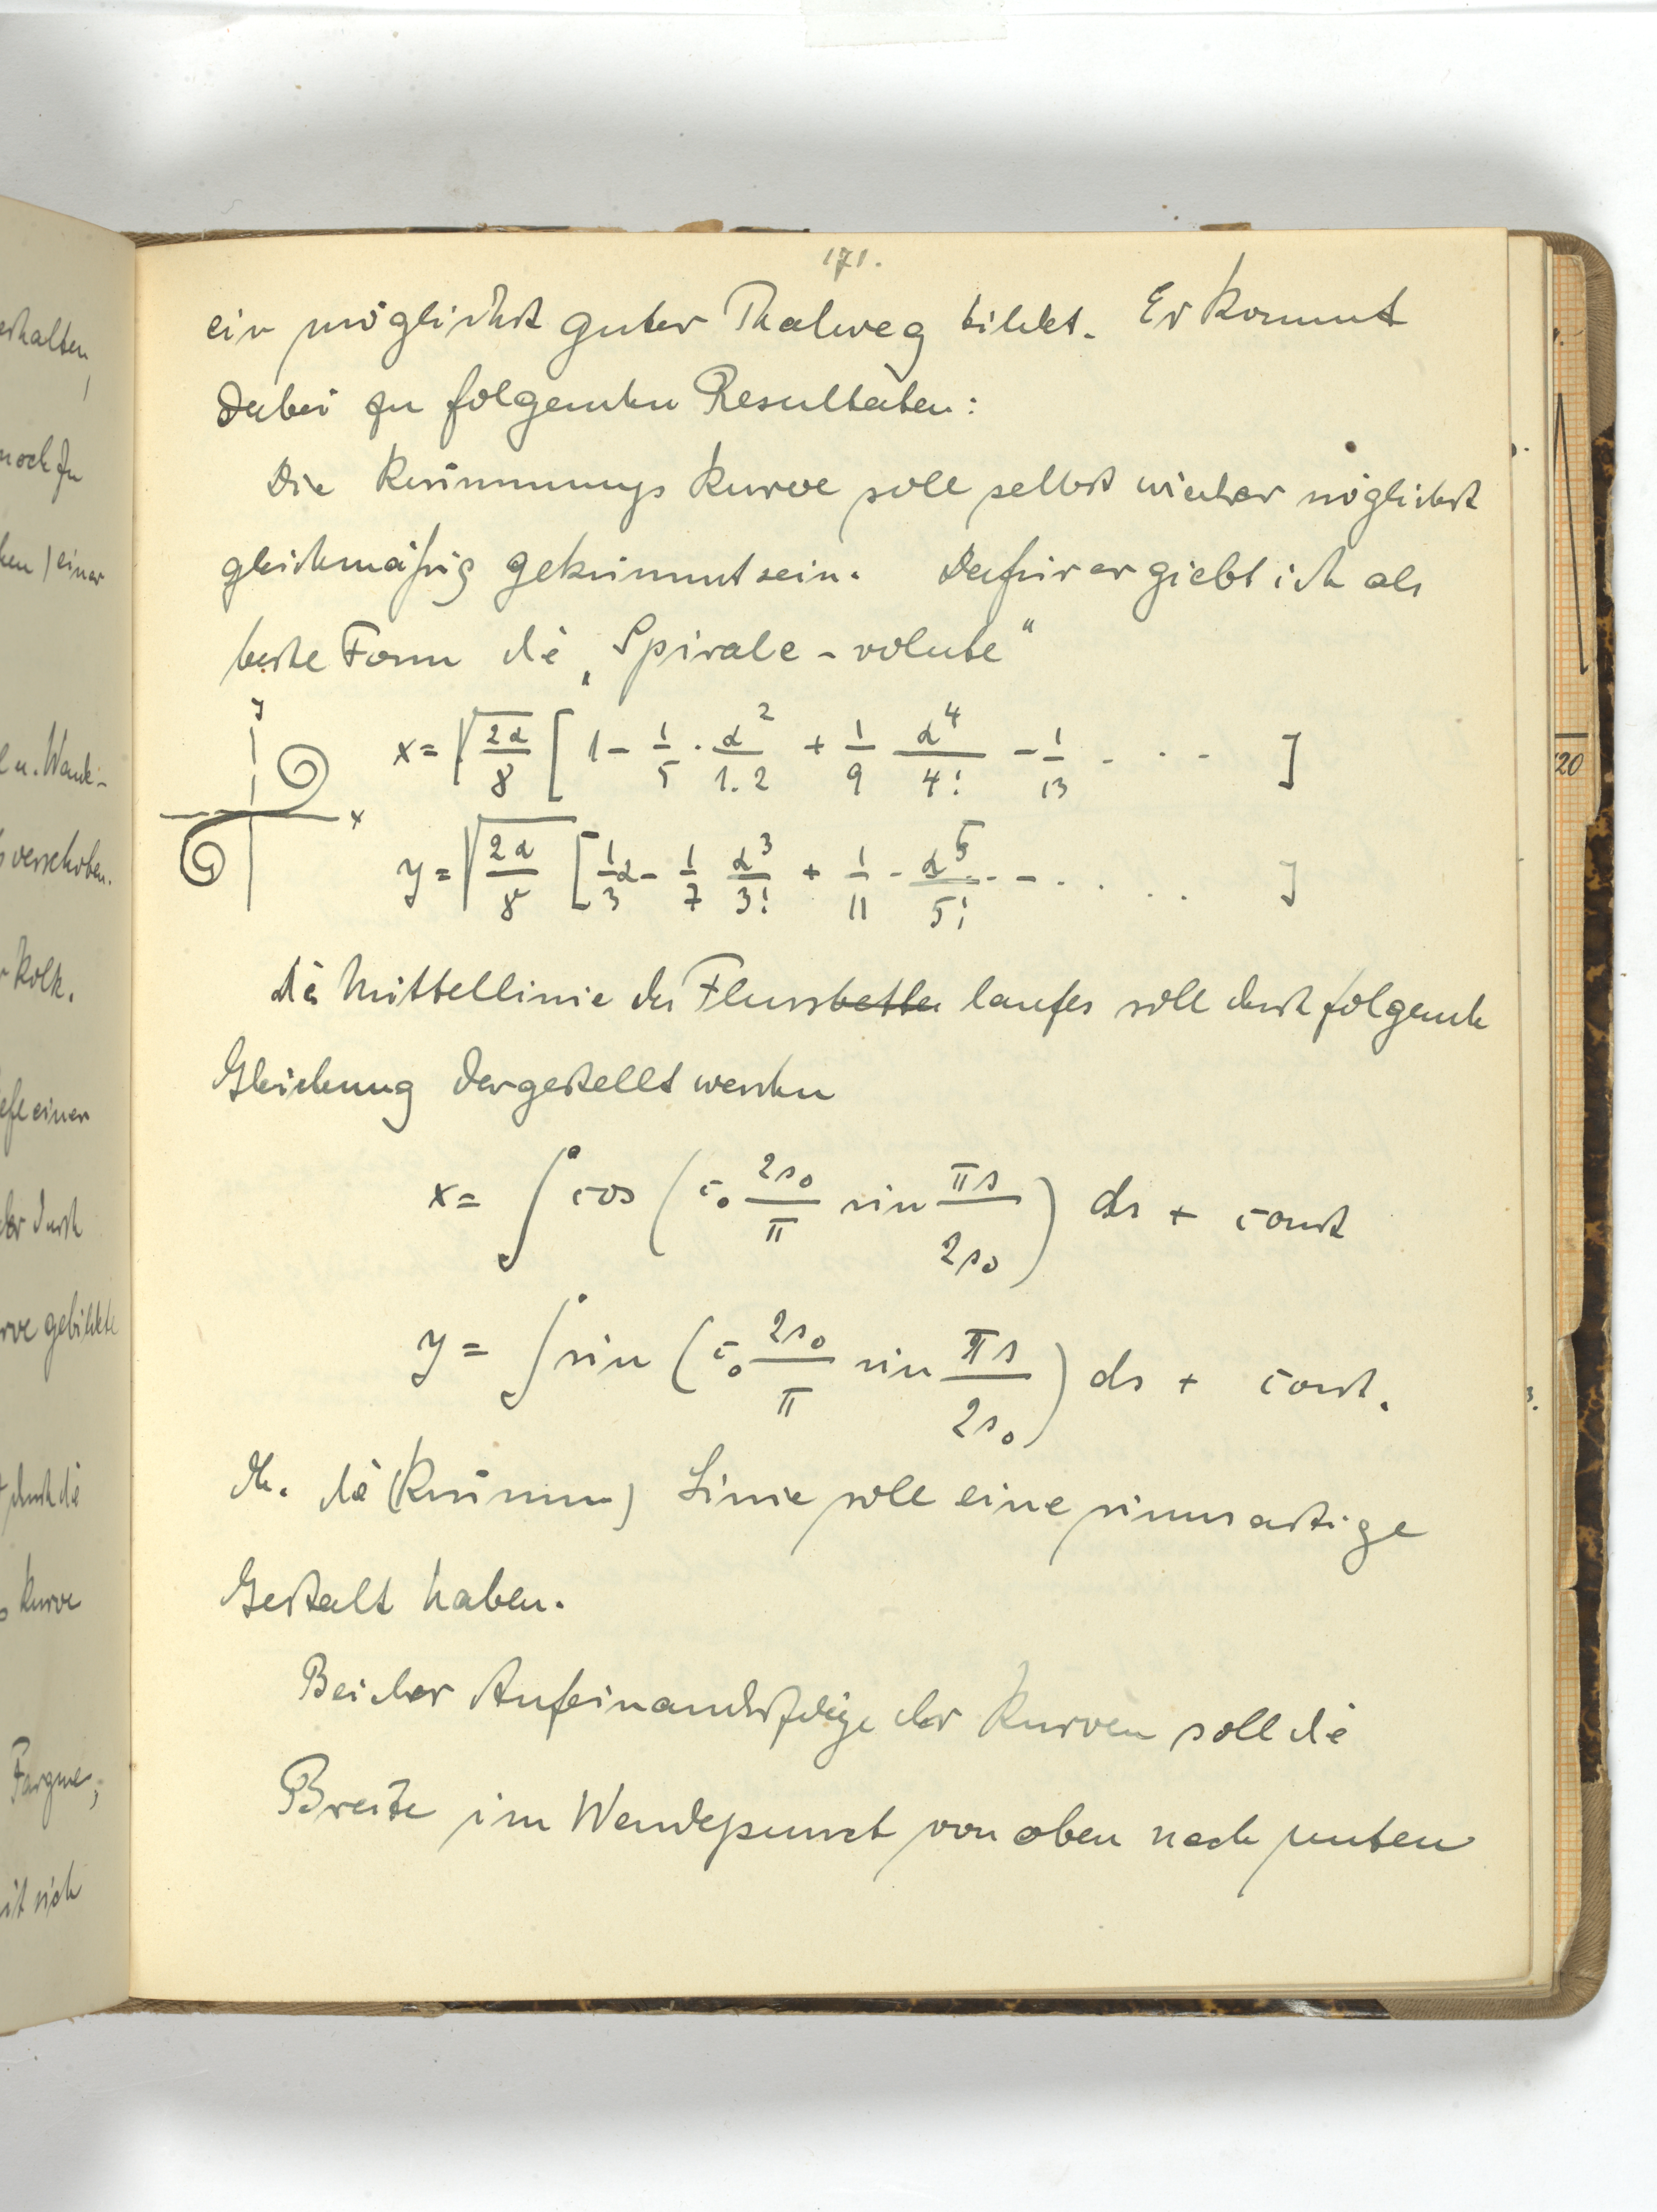 171.
ein möglichst guter Thalweg bildet. Er kommt
dabei zu folgenden Resultaten:
Die Krümmungskurve soll selbst wieder möglichst
gleichmäßig gekrümmt sein. Dafür ergiebt sich als
beste Form die „Spirale-volute“
y
x
x = √(2α/8) [ 1 - 1/5 · α²/1.2 + 1/9 α⁴/4! - 1/13 - · · - ]
y = √(2α/8) [ 1/3 α - 1/7 α³/3! + 1/11 - α⁵/5! · - - · · · · ]
die Mittellinie des Flussbettes laufes soll durch folgende
Gleichung dargestellt werden
x = ∫ cos ( c₀ 2s₀/π sin πs/2s₀ ) ds + const
y = ∫ sin ( c₀ 2s₀/π sin πs/2s₀ ) ds + const.
Dh. die (Krümm) Linie soll eine sinusartige
Gestalt haben.
Bei der Aufeinanderfolge der Kurven soll die
Breite im Wendepunct von oben nach unten
erhalten,
noch zu
einer
u. Wand-
verschoben.
Kolk.
einer
durch
gebildete
durch die
Kurve
Fargue,
sich
20